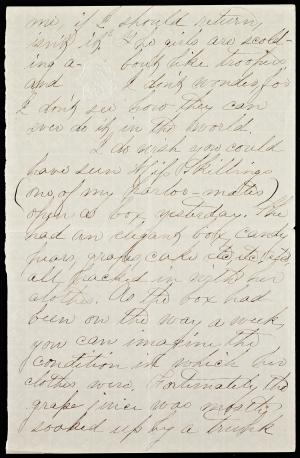 me, if I should return
isn't it? The girls are scold-
ing a- bout like troopers
and I don't wonder, for
I don't see how they can
ever do it in the world.
I do wish you could
have seen Miss Skillings
(one of my parlor-mates)
open a box, yesterday. She
had an elegant box, candy
pears, grapes, cake etc. etc.
all packed in with her
clothes. As the box had
been on the way a week,
you can imagine the
condition in which her
clothes were. Fortunately the
grape juice was mostly
soaked up by a trunk